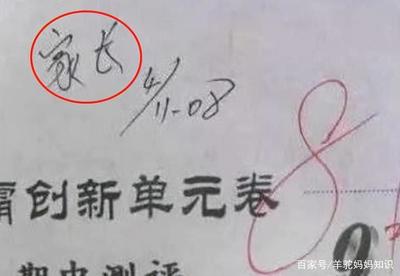 家长
4/11-08
8
创新单元卷
期中测评
百家号/羊驼妈妈知识